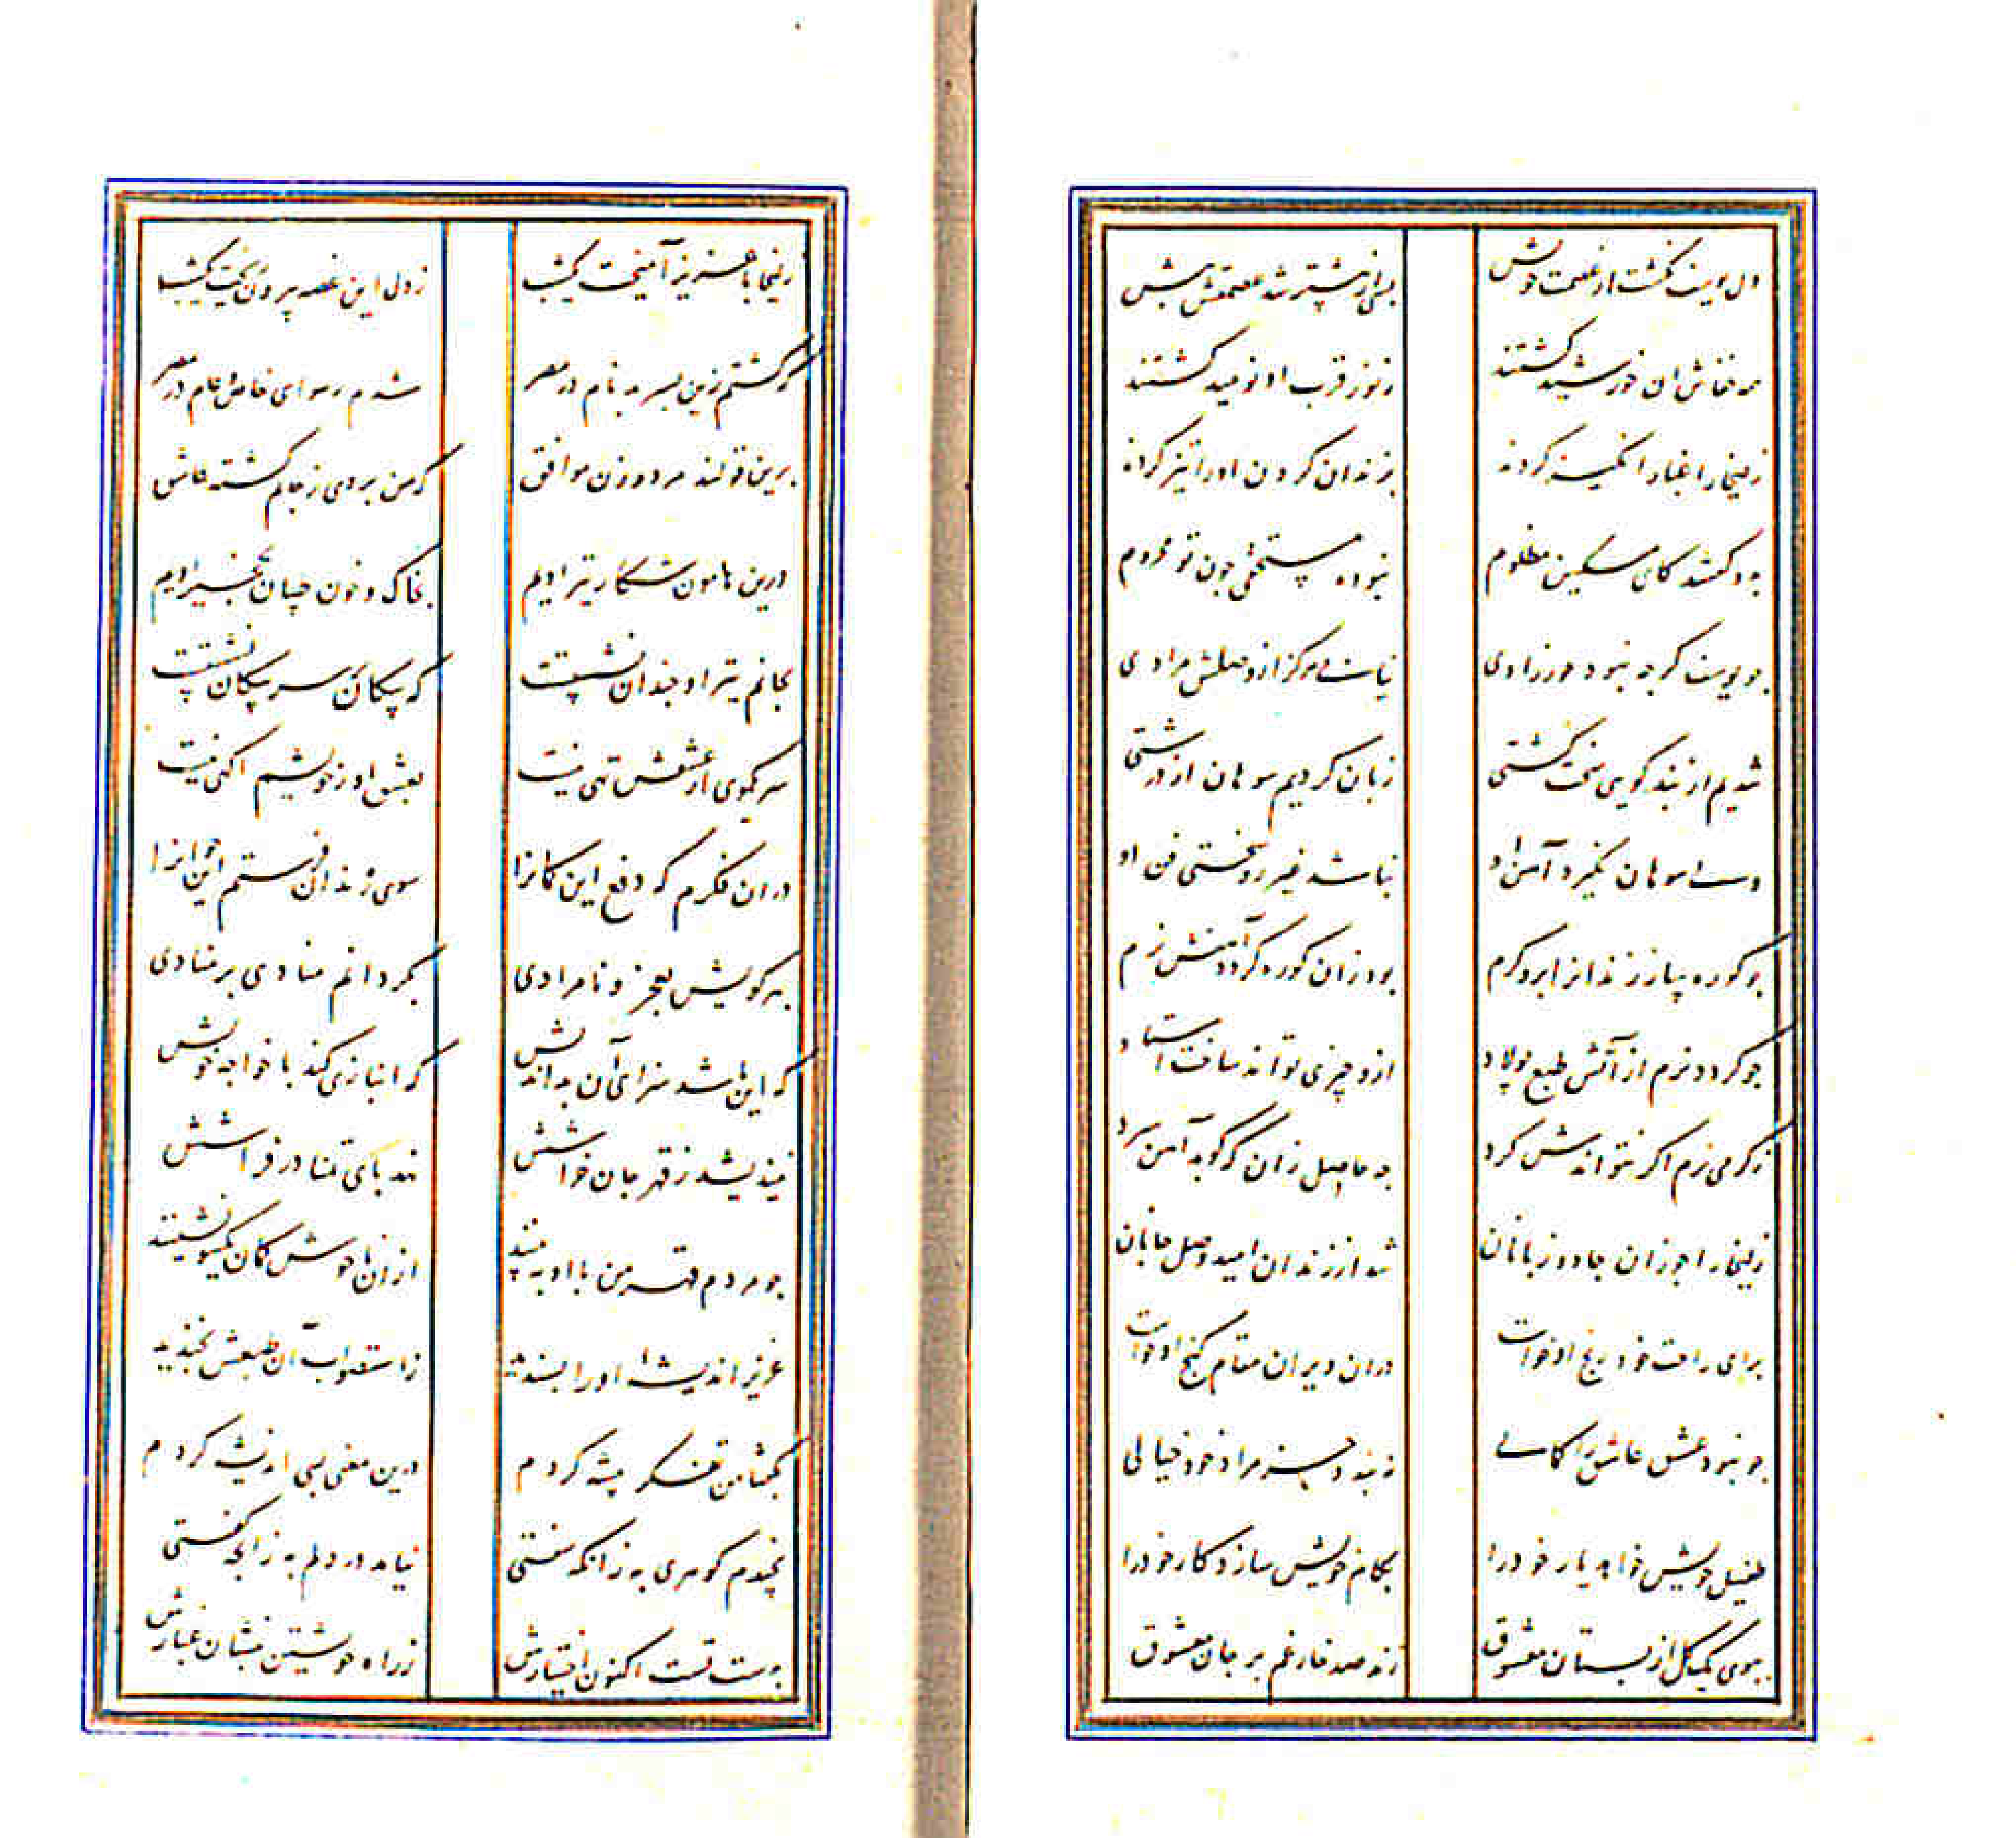 دل یوسف نکشت از عصمت خویش بسی از پیشتر شد عصمتش بیش
همه خفاش آن خورشید کشتند ز نور قرب او نومید کشتند
زلیخا را غبار انکیز کردند بزندان کردن او را تیز کردند
بدو کفتند کای مسکین مظلوم نبوده مستحقی چون تو محروم
چو یوسف کرچه نبود حورزادی نیابی هرکز از وصلش مرادی
شدیم از پند کویی سخت کشتی زبان کردیم سوهان از درشتی
ولی سوهان نکیرد آهن او نباشد غیر روسختی فن او
چو کوره ساز زندانرا برو کرم بود زان کوره کردد آهنش نرم
چو کردد نرم از آتش طبع پولاد ازو چیزی تواند ساخت استاد
ز کرمی نرم اکر نتواندش کرد چه حاصل زان که کوبد آهن سرد
زلیخا را چو زان جادو زبانان شد از زندان امید وصل جانان
برای راحت خود رنج او خواست دران ویران مقام کنج او خواست
چو نبود عشق عاشق را کمالی نبندد جز مراد خود خیالی
طفیل خویش خواهد یار خود را بکام خویش سازد کار خود را
ببوی یک کل از بستان معشوق زند صد خار غم بر جان معشوق
زلیخا با عزیز آمیخت یکشب ز دل این غصه بیرون ریخت یکشب
که کشتم زین پسر بدنام در مصر شدم رسوای خاص و عام در مصر
برین قولند مرد و زن موافق که من بر وی ز جانم کشته عاشق
درین هامون شکار تیر اویم بخاک و خون طپان نخجیر اویم
بجانم تیر او چندان نشستست که پیکان بر سر پیکان نشستست
سر یکموی از عشقش تهی نیست بعشق او ز خویشم اکهی نیست
دران فکرم که دفع این کمانرا سوی زندان فرستم این جوانرا
بهر کویش بعجز و نامرادی بکردانم منادی بر منادی
که این باشد سزای آن بداندیش که انبازی کند با خواجه خویش
نیندیشد ز قهر جان خراشش نهد پای تمنا در فراشش
چو مردم قهر من با او به بینند ازان ناخوش کمان یکسو نشینند
عزیز اندیشه او را پسندید ز استصواب آن طبعش بخندید
بکفتا من تفکر پیشه کردم درین معنی بسی اندیشه کردم
نچیدم کوهری به زانکه سفتی نیامد در دلم به زانچه کفتی
بدست تست اکنون اختیارش ز راه خویشتن بنشان غبارش